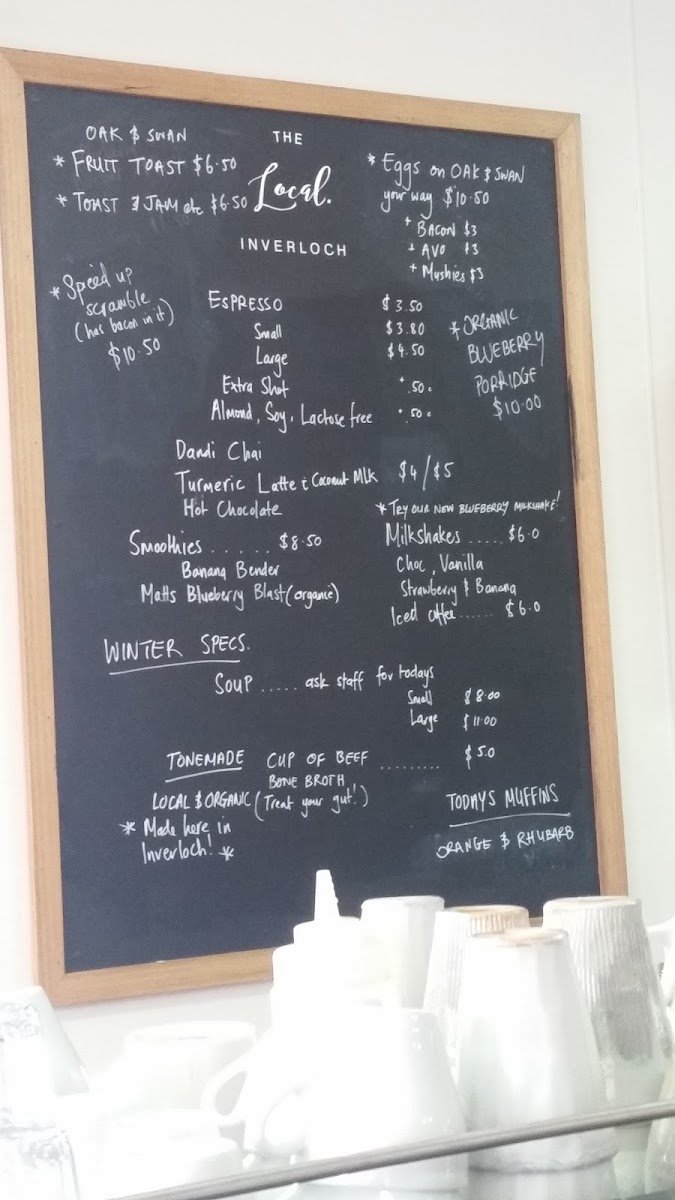 OAK & SWAN
* FRUIT TOAST $6.50
* TOAST & JAM etc $6.50
THE
Local.
INVERLOCH
* Eggs on OAK & SWAN
your way $10.50
+ BACON $3
+ AVO $3
+ Mushies $3
* Speed up
scramble
(has bacon in it)
$10.50
ESPRESSO $3.50
Small $3.80
Large $4.50
Extra Shot +.50c
Almond, Soy, Lactose free +.50c
* ORGANIC
BLUEBERRY
PORRIDGE
$10.00
Dandi Chai
Turmeric Latte & Coconut Mlk $4/$5
Hot Chocolate
Smoothies ...... $8.50
Banana Bender
Matts Blueberry Blast (organic)
* TRY OUR NEW BLUEBERRY MILKSHAKE!
Milkshakes ..... $6.0
Choc, Vanilla
Strawberry & Banana
Iced coffee ...... $6.0
WINTER SPECS.
SOUP ..... ask staff for todays
Small $8.00
Large $11.00
TONEMADE CUP OF BEEF ......... $5.0
BONE BROTH
LOCAL & ORGANIC (Treat your gut!)
* Made here in
Inverloch! *
TODAYS MUFFINS
ORANGE & RHUBARB